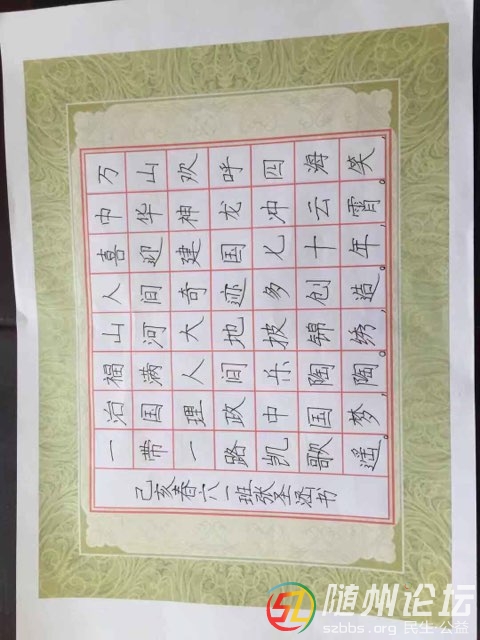 万山欢呼四海笑，
中华神龙冲云霄。
喜迎建国七十年，
人间奇迹多创造。
山河大地披锦绣，
福满人间乐陶陶。
治国理政中国梦，
一带一路凯歌遥。
己亥春六一班张圣涵书
随州论坛
szbbs.org 民生·公益